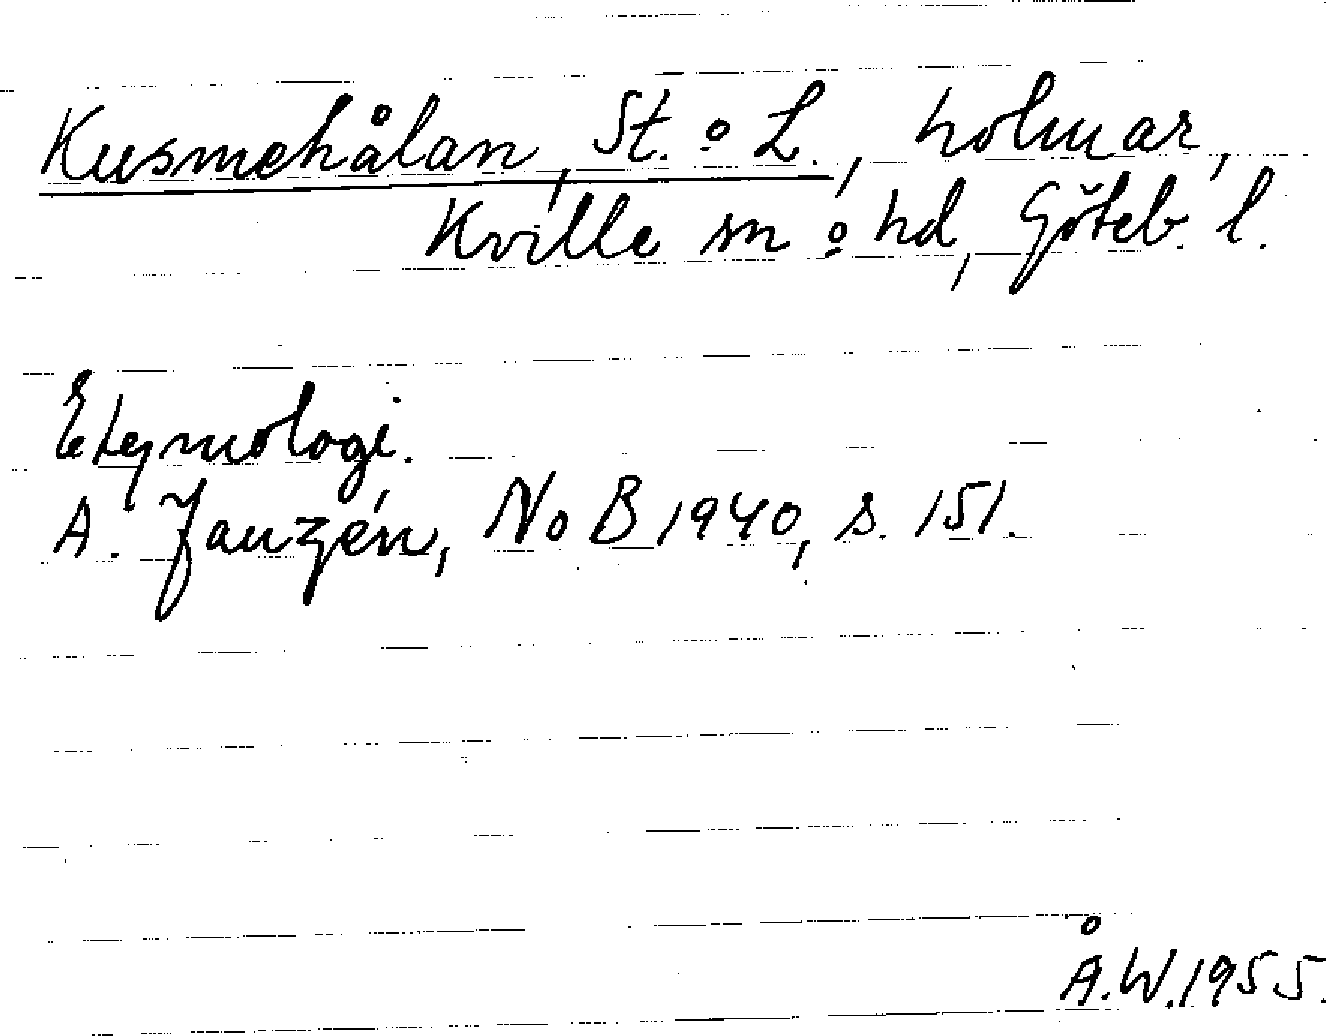 Kusmehålan, St. o L., holmar,
Kville sn o hd, Göteb. l.
Etymologi.
A. Janzén, NoB 1940, s. 151.
Å.W.1955.